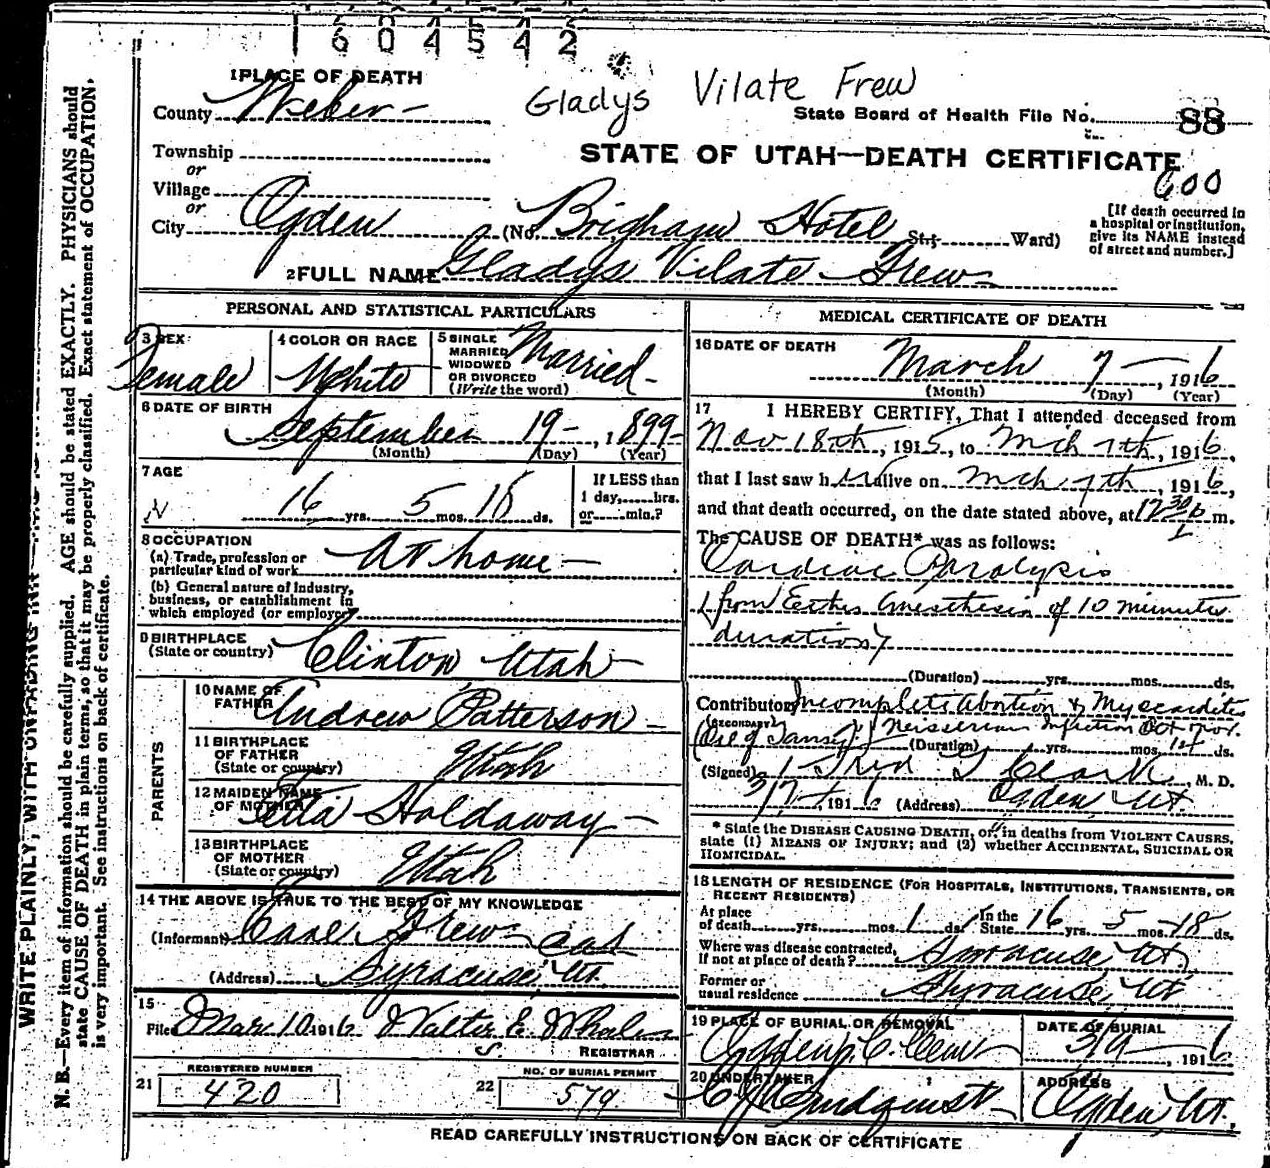 1604542
1 PLACE OF DEATH
Gladys Vilate Frew
County Weber
State Board of Health File No. 88
Township
or
STATE OF UTAH—DEATH CERTIFICATE
600
Village
or
City Ogden (No. Brigham Hotel St.; Ward)
[If death occurred in
a hospital or institution,
give its NAME instead
of street and number.]
2 FULL NAME Gladys Vilate Frew
PERSONAL AND STATISTICAL PARTICULARS
3 SEX Female
4 COLOR OR RACE White
5 SINGLE
MARRIED
WIDOWED
OR DIVORCED
(Write the word) Married
6 DATE OF BIRTH
September 19, 1899
(Month) (Day) (Year)
7 AGE
16 yrs. 5 mos. 18 ds.
If LESS than
1 day, hrs.
or min.?
8 OCCUPATION
(a) Trade, profession or
particular kind of work At home
(b) General nature of industry,
business, or establishment in
which employed (or employer)
9 BIRTHPLACE
(State or country) Clinton Utah
PARENTS
10 NAME OF
FATHER Andrew Patterson
11 BIRTHPLACE
OF FATHER
(State or country) Utah
12 MAIDEN NAME
OF MOTHER Etta Holdaway
13 BIRTHPLACE
OF MOTHER
(State or country) Utah
14 THE ABOVE IS TRUE TO THE BEST OF MY KNOWLEDGE
(Informant) Frew
(Address) Syracuse, Ut.
15
Filed Mar. 10 1916 Walter E. Whalen
REGISTRAR
21 REGISTERED NUMBER
420
22 NO. OF BURIAL PERMIT
579
MEDICAL CERTIFICATE OF DEATH
16 DATE OF DEATH
March 7, 1916
(Month) (Day) (Year)
17 I HEREBY CERTIFY, That I attended deceased from
Nov 18th, 1915, to Mch 7th, 1916,
that I last saw her alive on Mch 7th, 1916,
and that death occurred, on the date stated above, at 12 30 p m.
The CAUSE OF DEATH* was as follows:
Cardiac Paralysis
(from Ether Anesthesia of 10 minutes
duration)
(Duration) yrs. mos. ds.
Contributory Incomplete Abortion & Myocarditis
(SECONDARY)
(Oil of Tansy) Neisserian Infection Oct Nov.
(Duration) yrs. mos. 14 ds.
(Signed) Clark, M. D.
3/7 1916 (Address) Ogden Ut.
* State the DISEASE CAUSING DEATH, or, in deaths from VIOLENT CAUSES,
state (1) MEANS OF INJURY; and (2) whether ACCIDENTAL, SUICIDAL OR
HOMICIDAL.
18 LENGTH OF RESIDENCE (FOR HOSPITALS, INSTITUTIONS, TRANSIENTS, OR
RECENT RESIDENTS)
At place
of death yrs. mos. 1 ds.
In the
State 16 yrs. 5 mos. 18 ds.
Where was disease contracted,
if not at place of death? Syracuse Ut
Former or
usual residence Syracuse Ut
19 PLACE OF BURIAL OR REMOVAL
Ogden C. Cem
DATE OF BURIAL
3/9, 1916
20 UNDERTAKER
Lindquist
ADDRESS
Ogden, Ut.
READ CAREFULLY INSTRUCTIONS ON BACK OF CERTIFICATE
N. B.—Every item of information should be carefully supplied. AGE should be stated EXACTLY. PHYSICIANS should
state CAUSE OF DEATH in plain terms, so that it may be properly classified. Exact statement of OCCUPATION
is very important. See instructions on back of certificate.
WRITE PLAINLY, WITH UNFADING INK